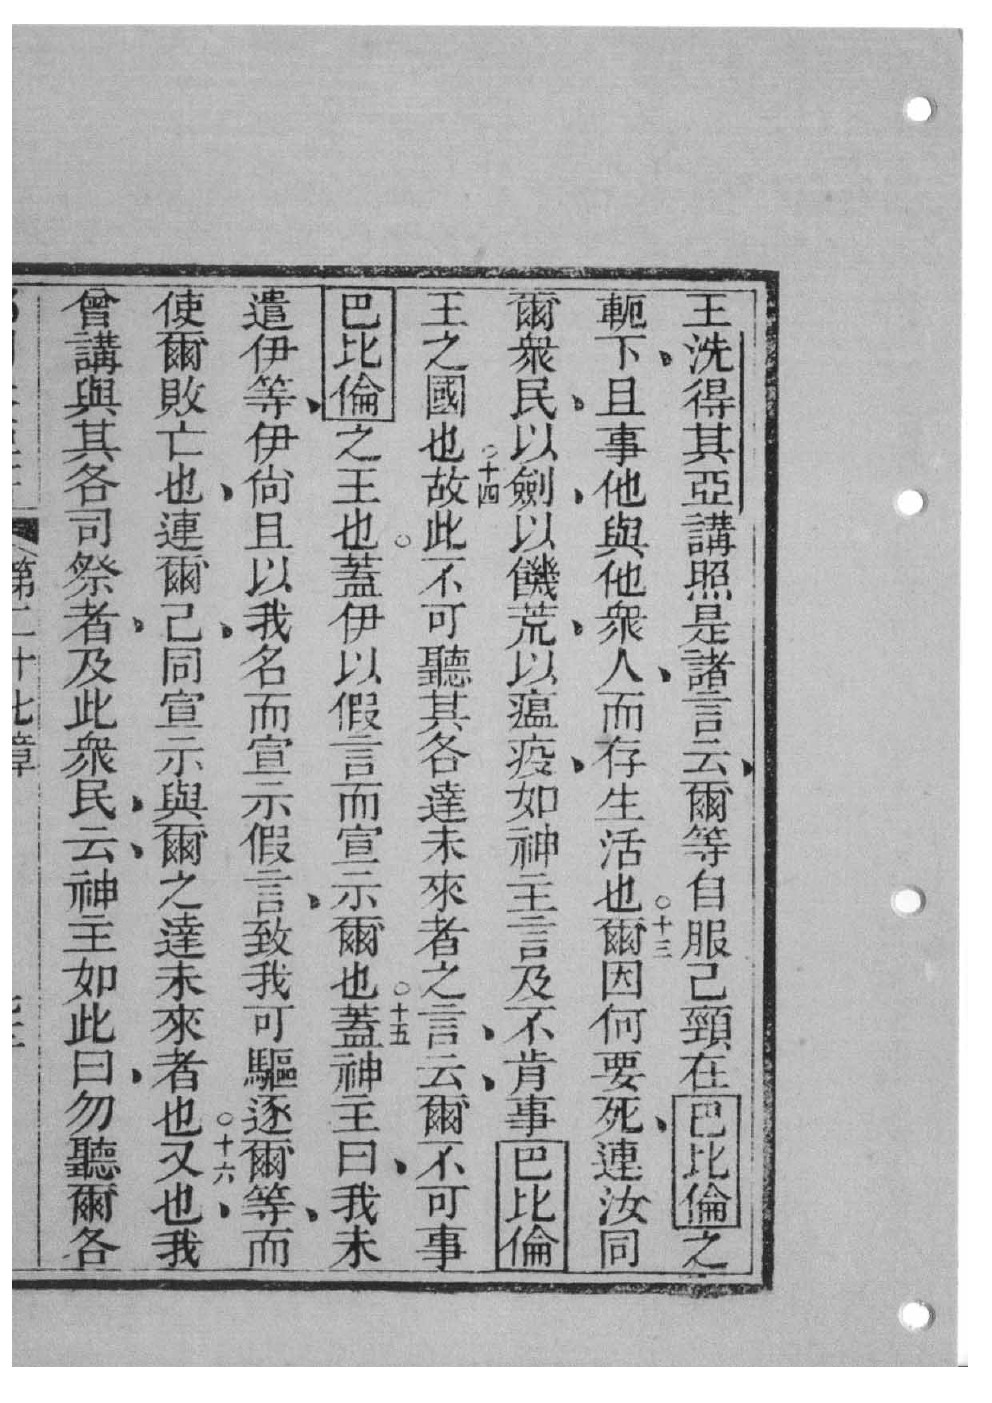 王洗得其亞講照是諸言云、爾等自服己頸在巴比倫之
軛下、且事他與他衆人、而存生活也○十三爾因何要死、連汝同
爾衆民、以劍、以饑荒、以瘟疫、如神主言及不肯事巴比倫
王之國也○十四故此不可聽其各達未來者之言、云、爾不可事
巴比倫之王也○蓋伊以假言而宣示爾也○十五蓋神主曰、我未
遣伊等、伊尙且以我名而宣示假言、致我可驅逐爾等、而
使爾敗亡也、連爾己、同宣示與爾之達未來者也○十六又也、我
曾講與其各司祭者、及此衆民、云、神主如此曰、勿聽爾各
第二十七章